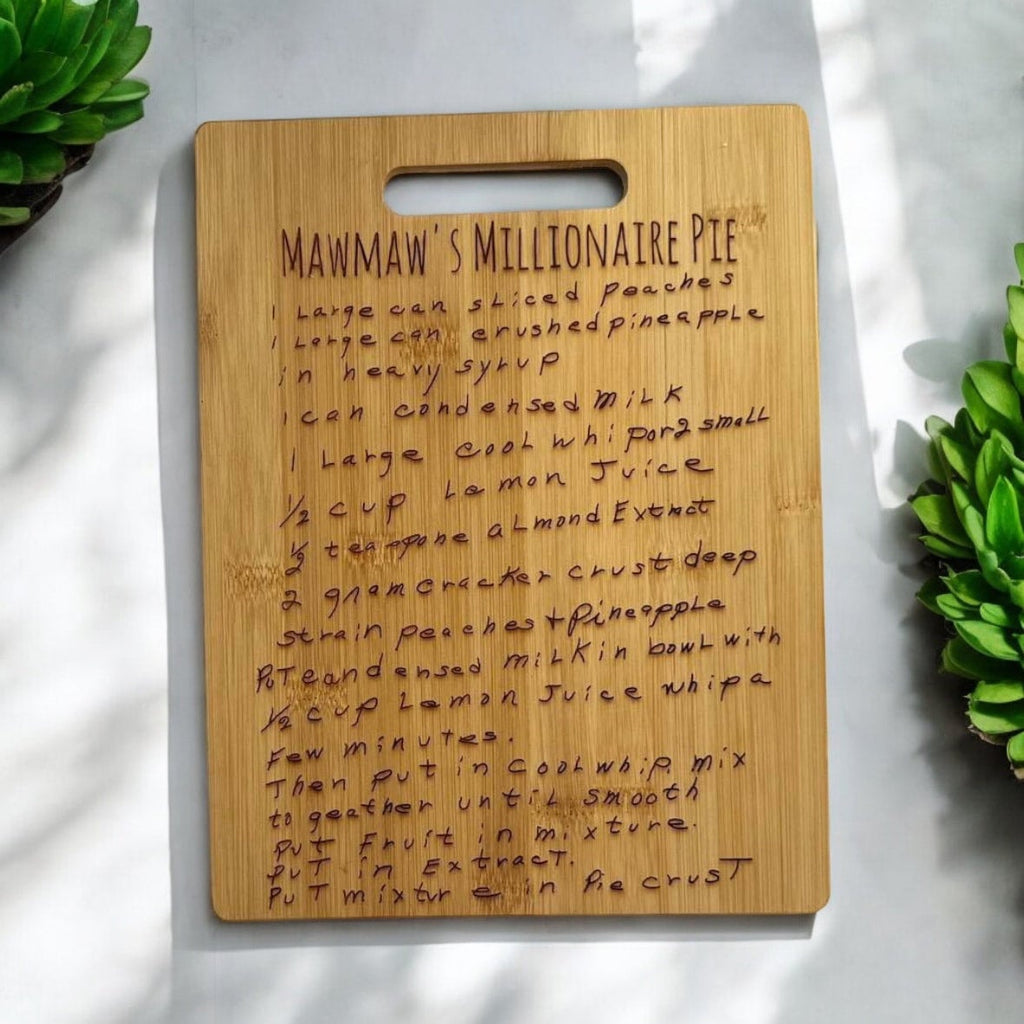 MAWMAW'S MILLIONAIRE PIE
1 Large can sliced peaches
1 Large can crushed pineapple
in heavy syrup
1 can condensed milk
1 Large cool whip or 2 small
1/2 cup Lemon Juice
1/2 teaspone almond Extract
2 gram cracker crust deep
strain peaches + pineapple
Put condensed milk in bowl with
1/2 cup Lemon Juice whip a
Few minutes.
Then put in cool whip. mix
to geather until smooth
put Fruit in mixture.
put in Extract.
Put mixture in Pie crust